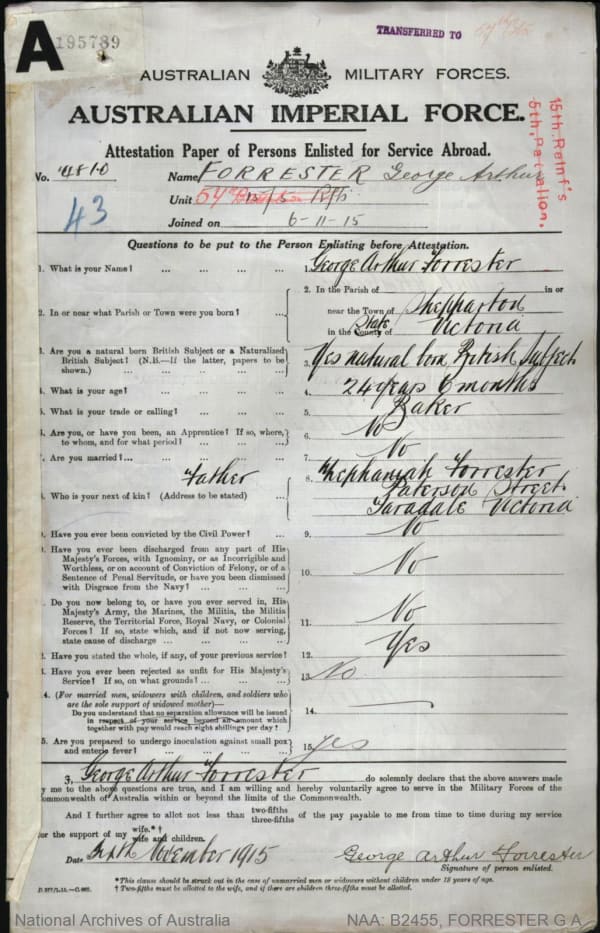 A 195789
TRANSFERRED TO
AUSTRALIAN MILITARY FORCES.
AUSTRALIAN IMPERIAL FORCE.
Attestation Paper of Persons Enlisted for Service Abroad.
15th. Reinf's
5th. Battalion.
No. 4810 Name FORRESTER George Arthur
43
Unit
Joined on 6-11-15
Questions to be put to the Person Enlisting before Attestation.
1. What is your Name? ... ... ... ... 1. George Arthur Forrester
2. In the Parish of in or
2. In or near what Parish or Town were you born? ... near the Town of Shepparton
in the County of State Victoria
3. Are you a natural born British Subject or a Naturalized
British Subject? (N.B.—If the latter, papers to be
shown.) ... ... ... ... ... 3. Yes natural born British Subject
4. What is your age? ... ... ... ... 4. 24 years 6 months
5. What is your trade or calling? ... ... ... 5. Baker
6. Are you, or have you been, an Apprentice? If so, where,
to whom, and for what period? ... ... ... 6. No
7. Are you married? ... ... ... ... ... 7. No
Father
8. Who is your next of kin? (Address to be stated) ... 8. Zhephaniah Forrester
Paterson Street
Taradale Victoria
9. Have you ever been convicted by the Civil Power? ... 9. No
Have you ever been discharged from any part of His
Majesty's Forces, with Ignominy, or as Incorrigible and
Worthless, or on account of Conviction of Felony, or of a
Sentence of Penal Servitude, or have you been dismissed
with Disgrace from the Navy? ... ... ... 10. No
Do you now belong to, or have you ever served in, His
Majesty's Army, the Marines, the Militia, the Militia
Reserve, the Territorial Force, Royal Navy, or Colonial
Forces? If so, state which, and if not now serving,
state cause of discharge ... ... ... ... 11. No
2. Have you stated the whole, if any, of your previous service? 12. Yes
3. Have you ever been rejected as unfit for His Majesty's
Service? If so, on what grounds? ... ... ... 13. No
4. (For married men, widowers with children, and soldiers who
are the sole support of widowed mother)—
Do you understand that no separation allowance will be issued
in respect of your service beyond an amount which
together with pay would reach eight shillings per day? 14. —
5. Are you prepared to undergo inoculation against small pox
and enteric fever? ... ... ... ... 15. yes
I, George Arthur Forrester do solemnly declare that the above answers made
by me to the above questions are true, and I am willing and hereby voluntarily agree to serve in the Military Forces of the
Commonwealth of Australia within or beyond the limits of the Commonwealth.
And I further agree to allot not less than two-fifths three-fifths of the pay payable to me from time to time during my service
for the support of my wife.*† wife and children.
Date Sixth November 1915 George Arthur Forrester
Signature of person enlisted.
*This clause should be struck out in the case of unmarried men or widowers without children under 18 years of age.
† Two-fifths must be allotted to the wife, and if there are children three-fifths must be allotted.
National Archives of Australia NAA: B2455, FORRESTER G A